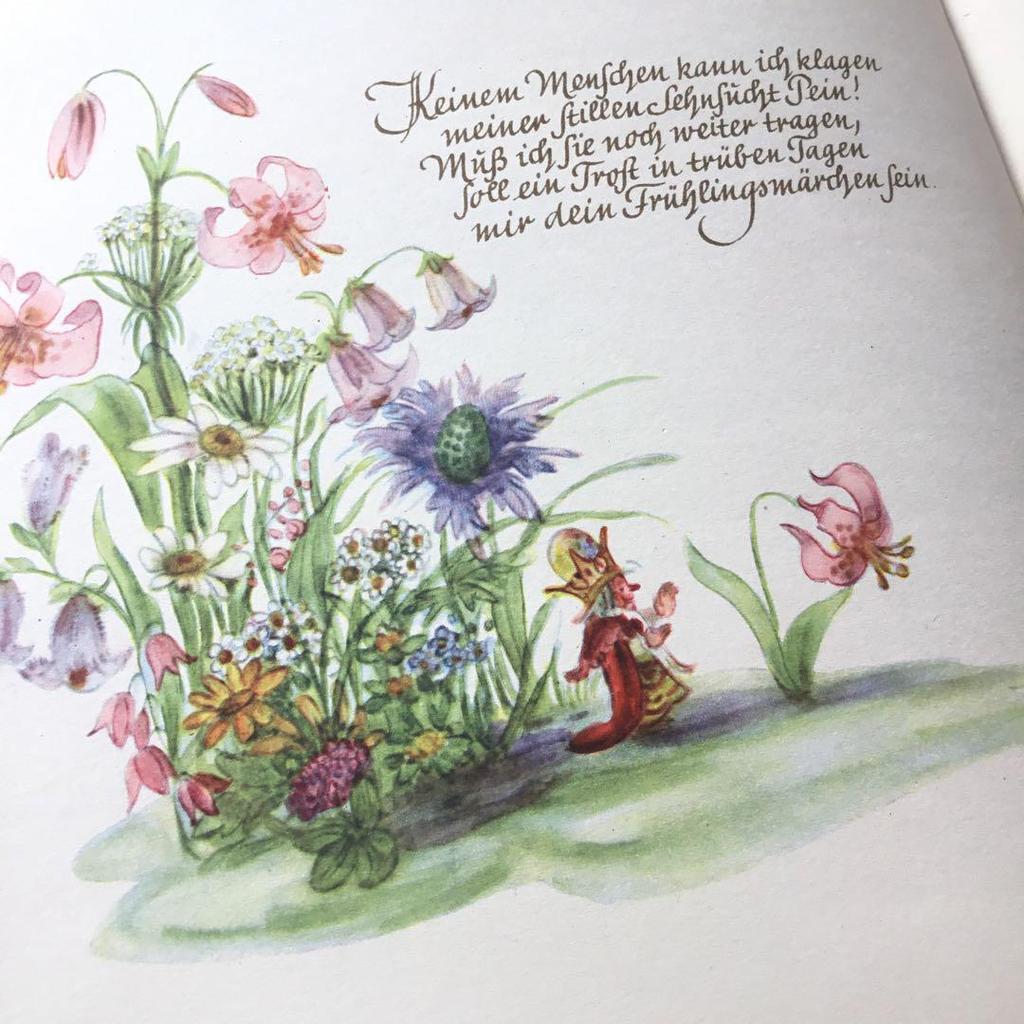 Keinem Menschen kann ich klagen
meiner stillen Sehnsucht Pein!
Muß ich sie noch weiter tragen,
soll ein Trost in trüben Tagen
mir dein Frühlingsmärchen sein.